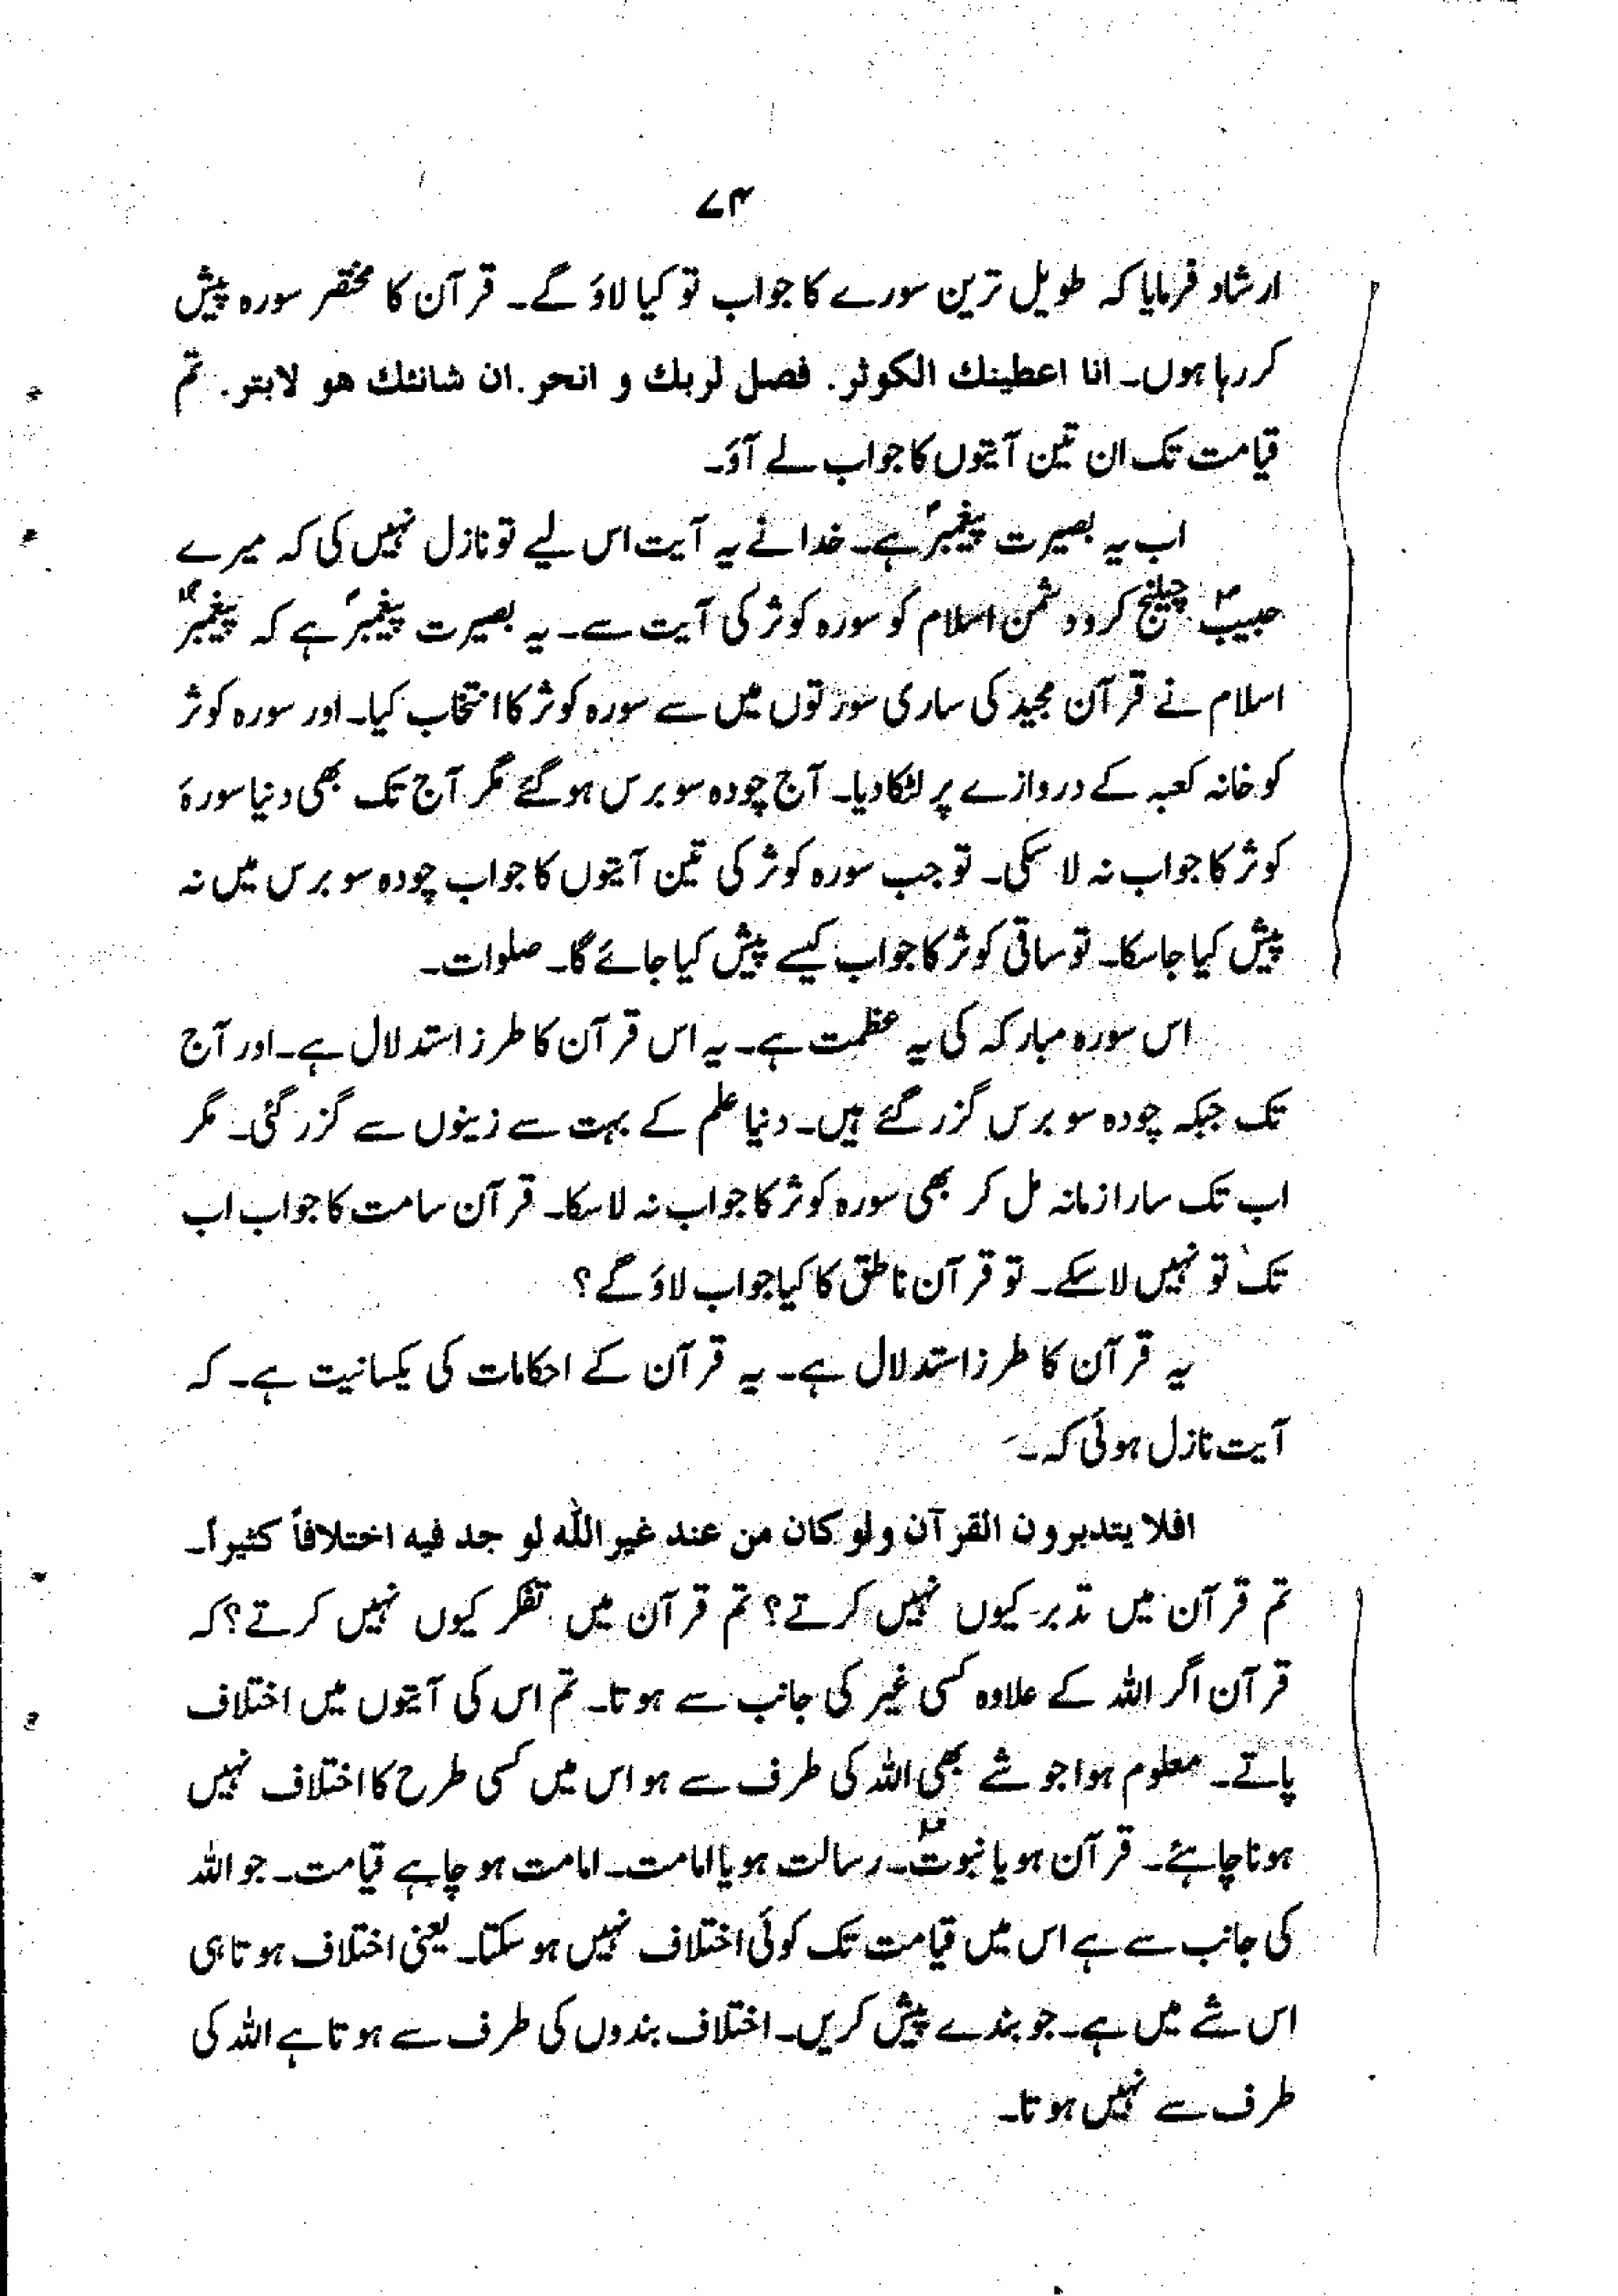 ۷۴
ارشاد فرمایا کہ طویل ترین سورے کا جواب تو کیا لاؤ گے۔ قرآن کا مختصر سورہ پیش
کر رہا ہوں۔ انا اعطینك الكوثر. فصل لربك و انحر. ان شانئك هو لابتر. تم
قیامت تک ان تین آیتوں کا جواب لے آؤ۔
اب یہ بصیرت پیغمبرؐ ہے۔ خدا نے یہ آیت اس لیے تو نازل نہیں کی کہ میرے
حبیبؐ چیلنج کر دو دشمن اسلام کو سورہ کوثر کی آیت سے۔ یہ بصیرت پیغمبرؐ ہے کہ پیغمبرؐ
اسلام نے قرآن مجید کی ساری سورتوں میں سے سورہ کوثر کا انتخاب کیا۔ اور سورہ کوثر
کو خانہ کعبہ کے دروازے پر لٹکا دیا۔ آج چودہ سو برس ہو گئے مگر آج تک بھی دنیا سورۂ
کوثر کا جواب نہ لا سکی۔ تو جب سورہ کوثر کی تین آیتوں کا جواب چودہ سو برس میں نہ
پیش کیا جا سکا۔ تو ساقی کوثر کا جواب کیسے پیش کیا جائے گا۔ صلوات۔
اس سورہ مبارکہ کی یہ عظمت ہے۔ یہ اس قرآن کا طرز استدلال ہے۔ اور آج
تک جبکہ چودہ سو برس گزر گئے ہیں۔ دنیا علم کے بہت سے زینوں سے گزر گئی۔ مگر
اب تک سارا زمانہ مل کر بھی سورہ کوثر کا جواب نہ لا سکا۔ قرآن سامت کا جواب اب
تک تو نہیں لا سکے۔ تو قرآن ناطق کا کیا جواب لاؤ گے؟
یہ قرآن کا طرز استدلال ہے۔ یہ قرآن کے احکامات کی یکسانیت ہے۔ کہ
آیت نازل ہوئی کہ۔
افلا یتدبرون القرآن ولو كان من عند غیر اللہ لو جد فیه اختلافاً كثیراً۔
تم قرآن میں تدبر کیوں نہیں کرتے؟ تم قرآن میں تفکر کیوں نہیں کرتے؟ کہ
قرآن اگر اللہ کے علاوہ کسی غیر کی جانب سے ہوتا۔ تم اس کی آیتوں میں اختلاف
پاتے۔ معلوم ہوا جو شے بھی اللہ کی طرف سے ہو اس میں کسی طرح کا اختلاف نہیں
ہونا چاہئے۔ قرآن ہو یا نبوتؐ۔ رسالت ہو یا امامت۔ امامت ہو چاہے قیامت۔ جو اللہ
کی جانب سے ہے اس میں قیامت تک کوئی اختلاف نہیں ہو سکتا۔ یعنی اختلاف ہوتا ہی
اس شے میں ہے۔ جو بندے پیش کریں۔ اختلاف بندوں کی طرف سے ہوتا ہے اللہ کی
طرف سے نہیں ہوتا۔